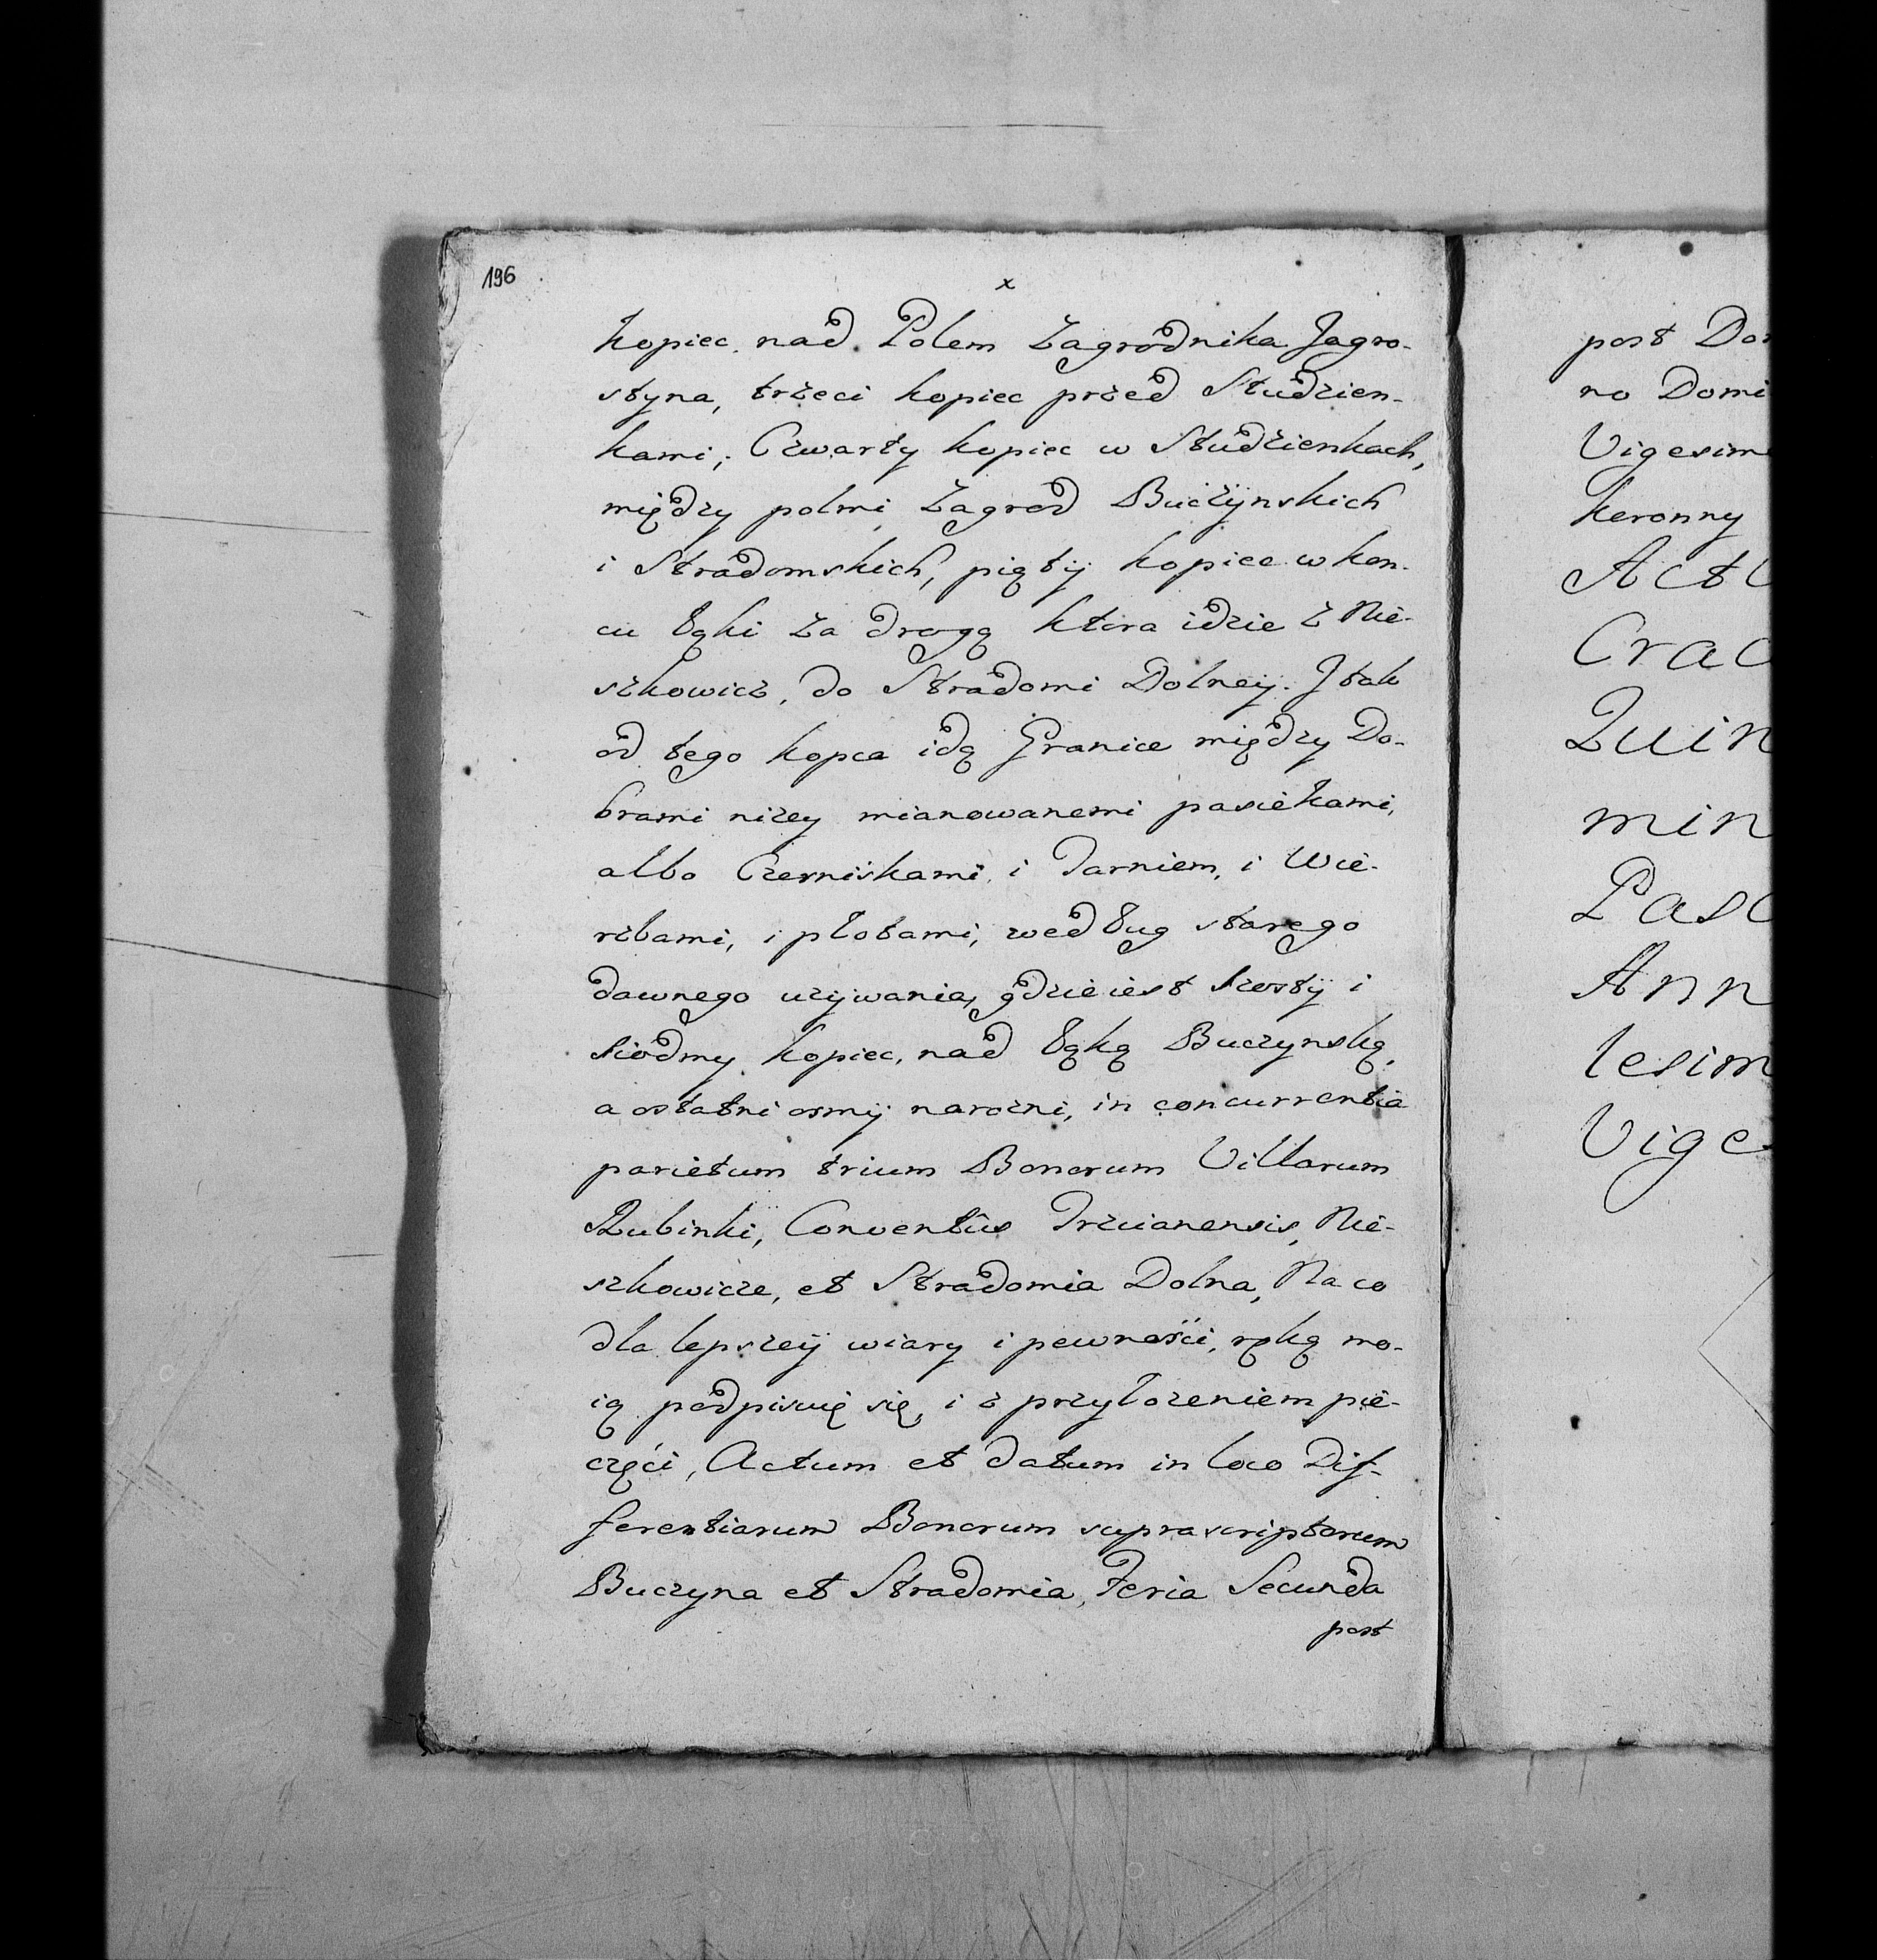 196
x
kopiec nad Polem Zagrodnika Jagro-
styna, trzeci kopiec przed Studzien-
kami, Czwarty kopiec w Studzienkach,
między polmi Zagrod Buczÿnskich
i Stradomskich, piątÿ kopiec w kon-
cu łąki za drogą ktora idzie z Nie-
szkowicz, do Stradomi Dolneÿ. J tak
od tego kopca idą Granice między Do-
brami nizey mianowanemi pasiekami,
albo Czerniskami, i Tarniem, i Wie-
rzbami, i płotami, według starego
dawnego uzÿwania, gdzie iest Szostÿ i
Siodmy kopiec, nad łąką Buczynską,
a ostatni osmÿ narozni, in concurrentia
parietum trium Bonorum Villarum
Łubinki, Conventûs Trzcianensis, Nie-
szkowicze, et Stradomia Dolna, Na co
dla lepszeÿ wiary i pewności, ręką mo-
ią podpisuię się, i z przyłozeniem pie-
częci, Actum et datum in loco Dif-
ferentiarum Bonorum suprascriptorum
Buczyna et Stradomia, Feria Secunda
post
post Do
no Domi
Vigesim
keronny
Act
Crac
Quin
min
Pas
Ann
lesim
Vige